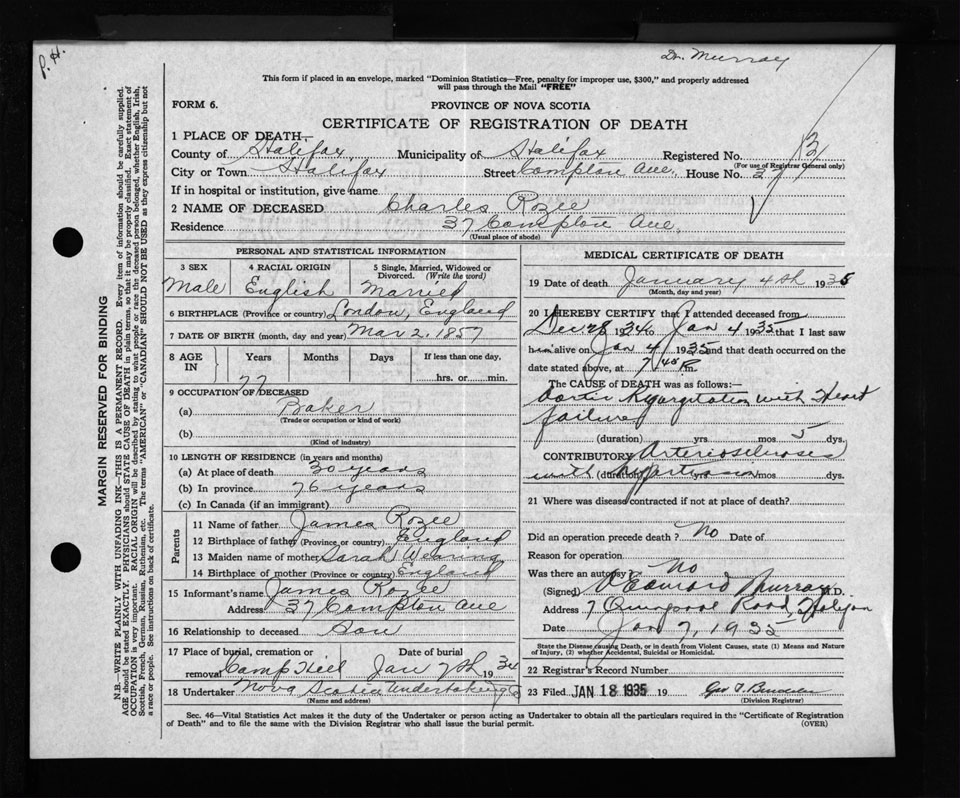 P. H.
Dr. Murray
This form if placed in an envelope, marked "Dominion Statistics—Free, penalty for improper use, $300," and properly addressed
will pass through the Mail "FREE"
FORM 6.
PROVINCE OF NOVA SCOTIA
CERTIFICATE OF REGISTRATION OF DEATH
1 PLACE OF DEATH—
County of Halifax Municipality of Halifax Registered No. 13
(For use of Registrar General only)
City or Town Halifax Street Compton Ave. House No. 37
If in hospital or institution, give name
2 NAME OF DECEASED Charles Rozee
Residence 37 Compton Ave.
(Usual place of abode)
PERSONAL AND STATISTICAL INFORMATION
3 SEX 4 RACIAL ORIGIN 5 Single, Married, Widowed or
Divorced. (Write the word)
Male English Married
6 BIRTHPLACE (Province or country) London, England
7 DATE OF BIRTH (month, day and year) Mar 2, 1857
8 AGE IN Years Months Days If less than one day.
77 hrs. or min.
9 OCCUPATION OF DECEASED
(a) Baker
(Trade or occupation or kind of work)
(b)
(Kind of industry)
10 LENGTH OF RESIDENCE (in years and months)
(a) At place of death 30 years
(b) In province 76 years
(c) In Canada (if an immigrant)
Parents
11 Name of father James Rozee
12 Birthplace of father (Province or country) England
13 Maiden name of mother Sarah Wearing
14 Birthplace of mother (Province or country) England
15 Informant's name James Rozee
Address 37 Compton Ave
16 Relationship to deceased Son
17 Place of burial, cremation or Date of burial
removal Camp Hill Jan 7th, 1934
18 Undertaker Nova Scotia Undertaking Co
(Name and address)
MEDICAL CERTIFICATE OF DEATH
19 Date of death January 4th 1935
(Month, day and year)
20 I HEREBY CERTIFY that I attended deceased from
Dec 28 1934 to Jan 4 1935 that I last saw
him alive on Jan 4 1935 and that death occurred on the
date stated above, at 7 45 P. m.
The CAUSE of DEATH was as follows:—
Aortic Regurgitation with Heart
failure
(duration) yrs. mos. 5 dys.
CONTRIBUTORY Arteriosclerosis
with hypertension (duration) mos. dys.
21 Where was disease contracted if not at place of death?
Did an operation precede death? No Date of
Reason for operation
Was there an autopsy? No
(Signed) Murray M.D.
Address 7 Quinpool Road, Halifax
Date Jan 7, 1935
State the Disease causing Death, or in death from Violent Causes, state (1) Means and Nature
of Injury, (2) whether Accidental, Suicidal or Homicidal.
22 Registrar's Record Number
23 Filed JAN 18 1935 19 Geo T.
(Division Registrar)
Sec. 46—Vital Statistics Act makes it the duty of the Undertaker or person acting as Undertaker to obtain all the particulars required in the "Certificate of Registration
of Death" and to file the same with the Division Registrar who shall issue the burial permit. (OVER)
MARGIN RESERVED FOR BINDING
N.B.—WRITE PLAINLY WITH UNFADING INK—THIS IS A PERMANENT RECORD. Every item of information should be carefully supplied.
AGE should be stated EXACTLY. PHYSICIANS should STATE CAUSE OF DEATH in plain terms, so that it may be properly classified. Exact statement of
OCCUPATION is very important. RACIAL ORIGIN will be described by stating to what people or race the deceased person belonged, whether English, Irish,
Scottish, French, German, Russian, Ruthenian, etc. The terms "AMERICAN" or "CANADIAN" SHOULD NOT BE USED as they express citizenship but not
a race or people. See instructions on back of certificate.